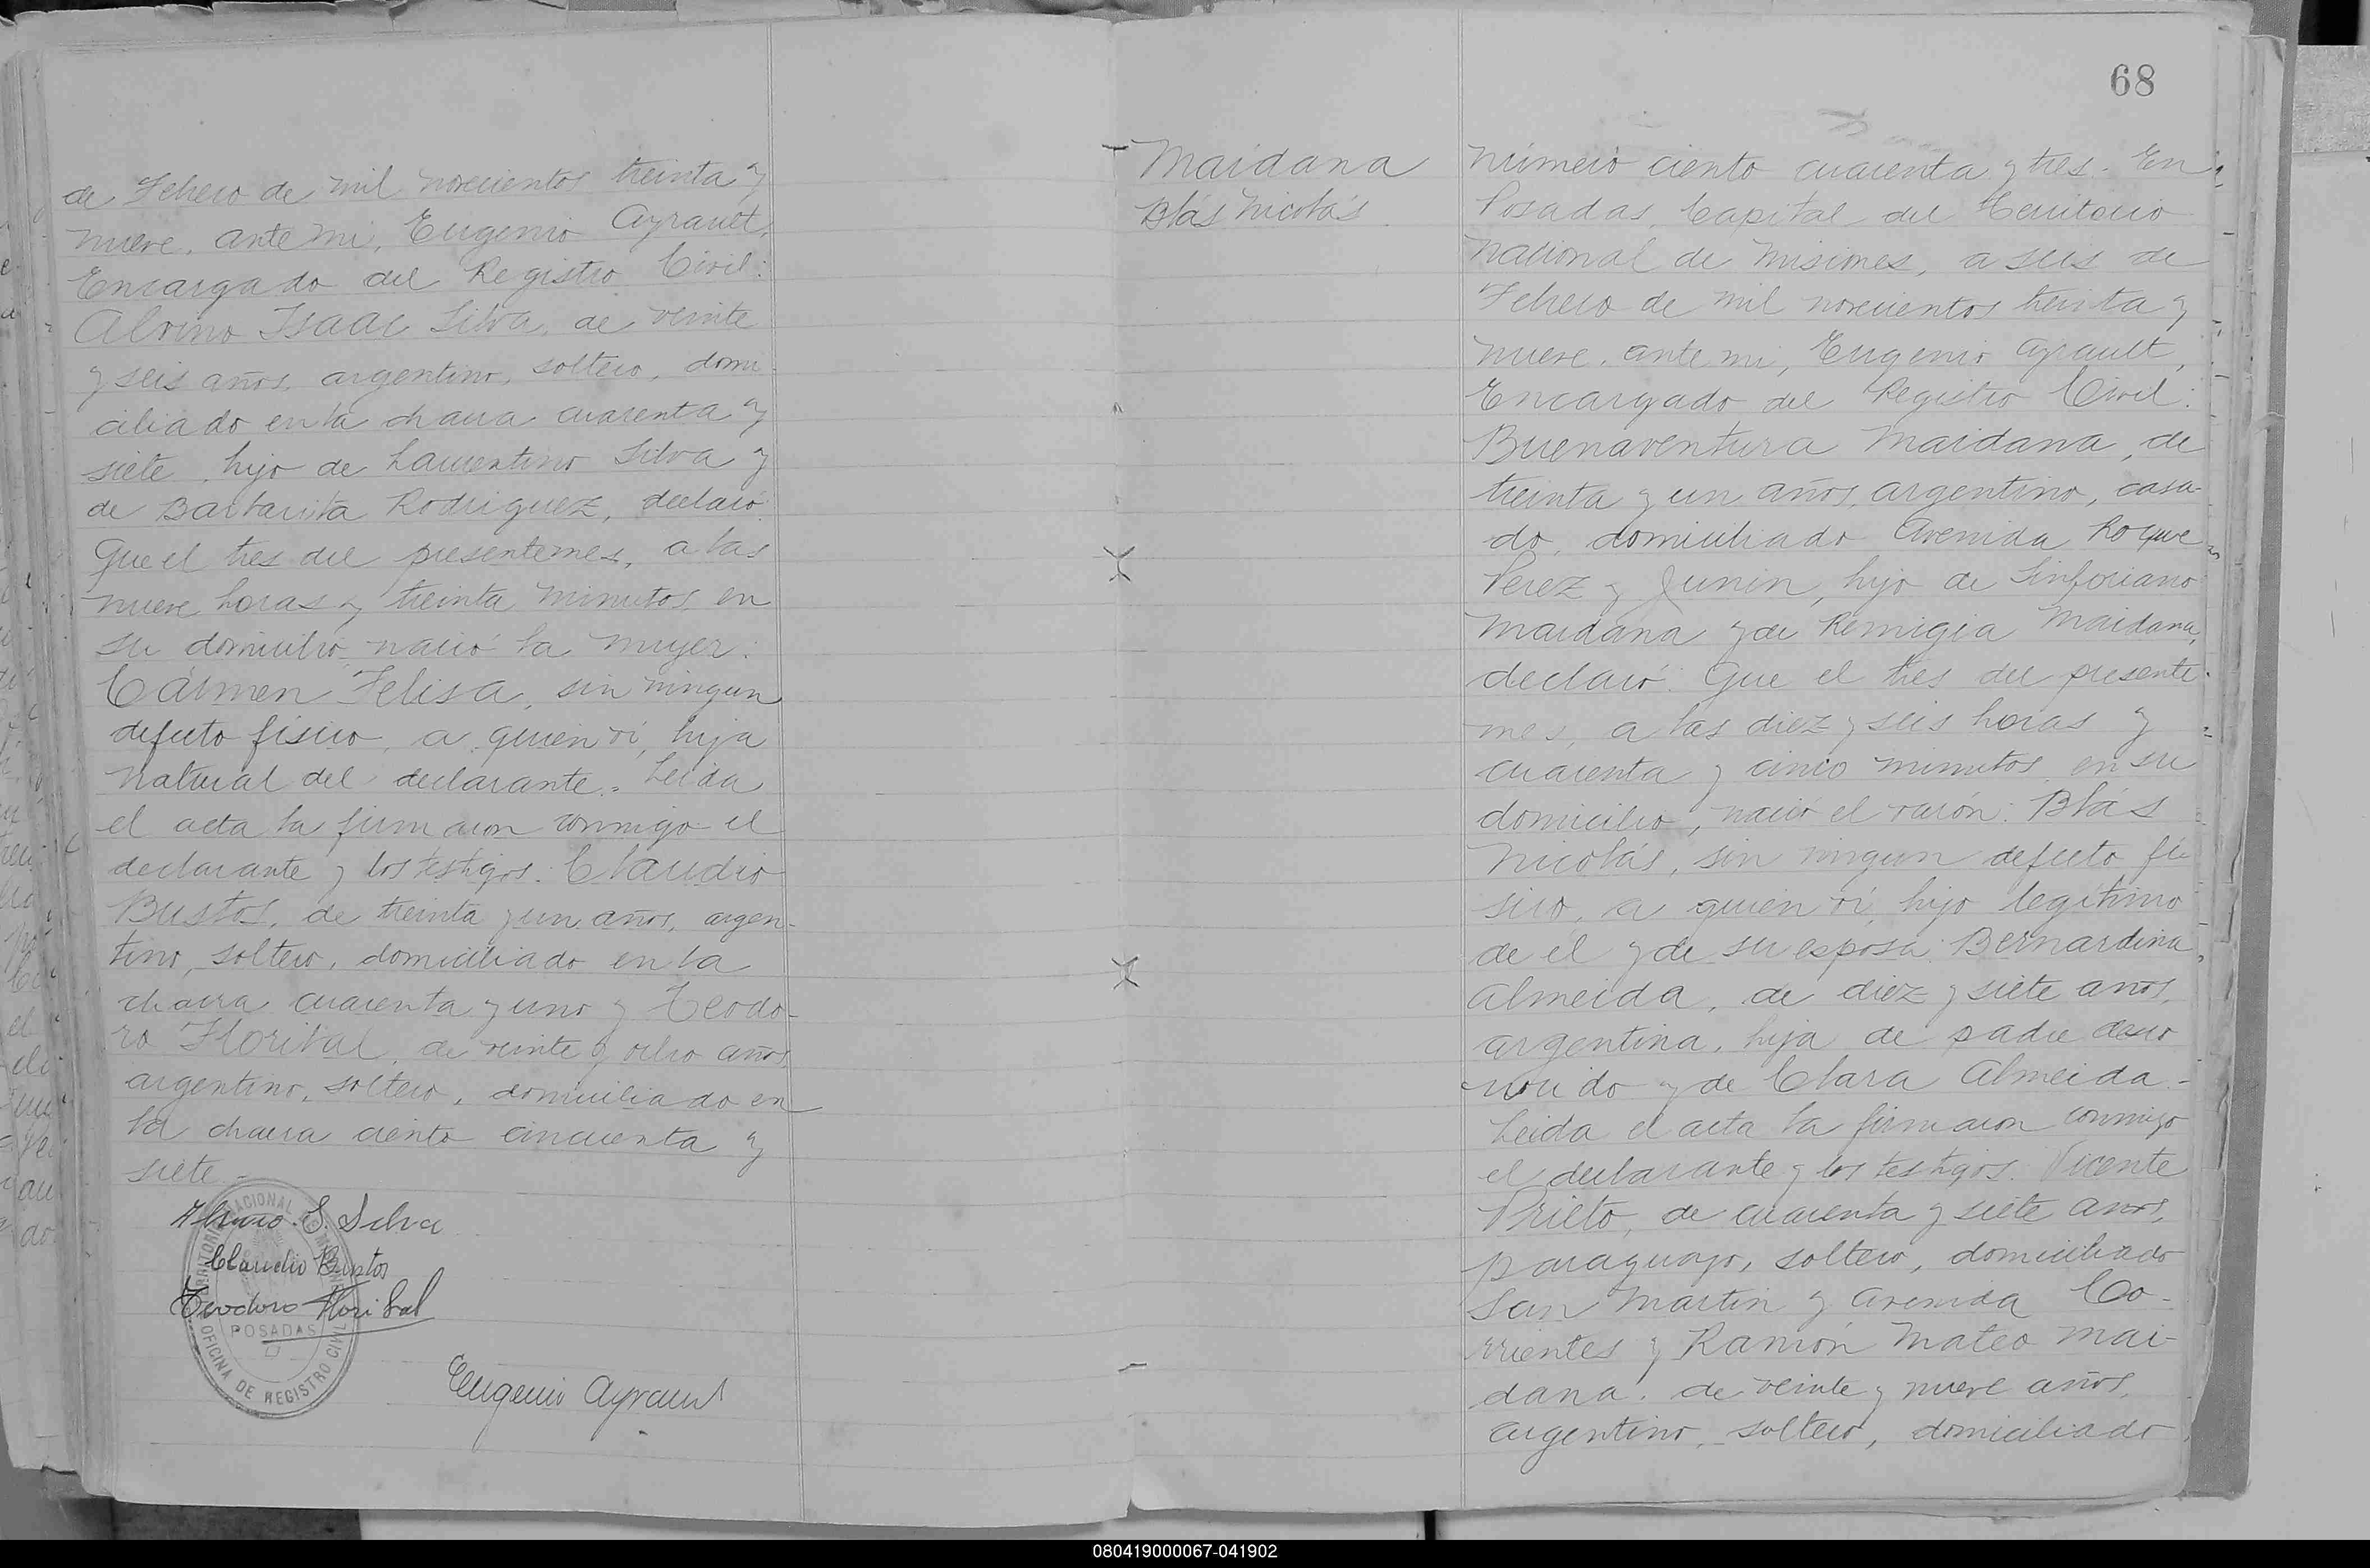 de Febrero de mil novecientos treinta y
nueve, ante mi, Eugenio Ayrault,
Encargado del Registro Civil:
Alvino Isaac Silva, de veinte
y seis años, argentino, soltero, domi-
ciliado en la chacra cuarenta y
siete, hijo de Laurentino Silva y
de Barbarita Rodriguez, declaró:
Que el tres del presente mes, a las
nueve horas y treinta minutos, en
su domicilio, nació la mujer:
Cármen Felisa, sin ningun
defecto físico, a quien ví, hija
natural del declarante. Leida
el acta la firmaron conmigo el
declarante y los testigos: Claudio
Bustos, de treinta y un años, argen-
tino, soltero, domiciliado en la
chacra cuarenta y uno y Teodo-
ro Florital, de veinte y ocho años,
argentino, soltero, domiciliado en
la chacra ciento cincuenta y
siete.-
Alvino. I. Silva
Claudio Bustos
Teodoro
Eugenio Ayrault
TERRITORIO NACIONAL DE MISIONES
POSADAS
OFICINA DE REGISTRO CIVIL
68
Maidana
Blás Nicolás
Número ciento cuarenta y tres. En
Posadas, Capital del Territorio
Nacional de Misiones, a seis de
Febrero de mil novecientos treinta y
nueve, ante mi, Eugenio Ayrault,
Encargado del Registro Civil:
Buenaventura Maidana, de
treinta y un años, argentino, casa-
do, domiciliado Avenida Roque
Perez y Junin, hijo de Sinforiano
Maidana y de Remigia Maidana,
declaró: Que el tres del presente
mes, a las diez y seis horas y
cuarenta y cinco minutos, en su
domicilio, nació el varón: Blás
Nicolás, sin ningun defecto fí-
sico, a quien ví, hijo legítimo
de él y de su esposa: Bernardina
Almeida, de diez y siete años,
argentina, hija de padre desco-
nocido y de Clara Almeida.-
Leida el acta la firmaron conmigo
el declarante y los testigos: Vicente
Prieto, de cuarenta y siete años,
paraguayo, soltero, domiciliado
San Martin y Avenida Co-
rrientes y Ramón Mateo Mai-
dana, de veinte y nueve años,
argentino, soltero, domiciliado
080419000067-041902